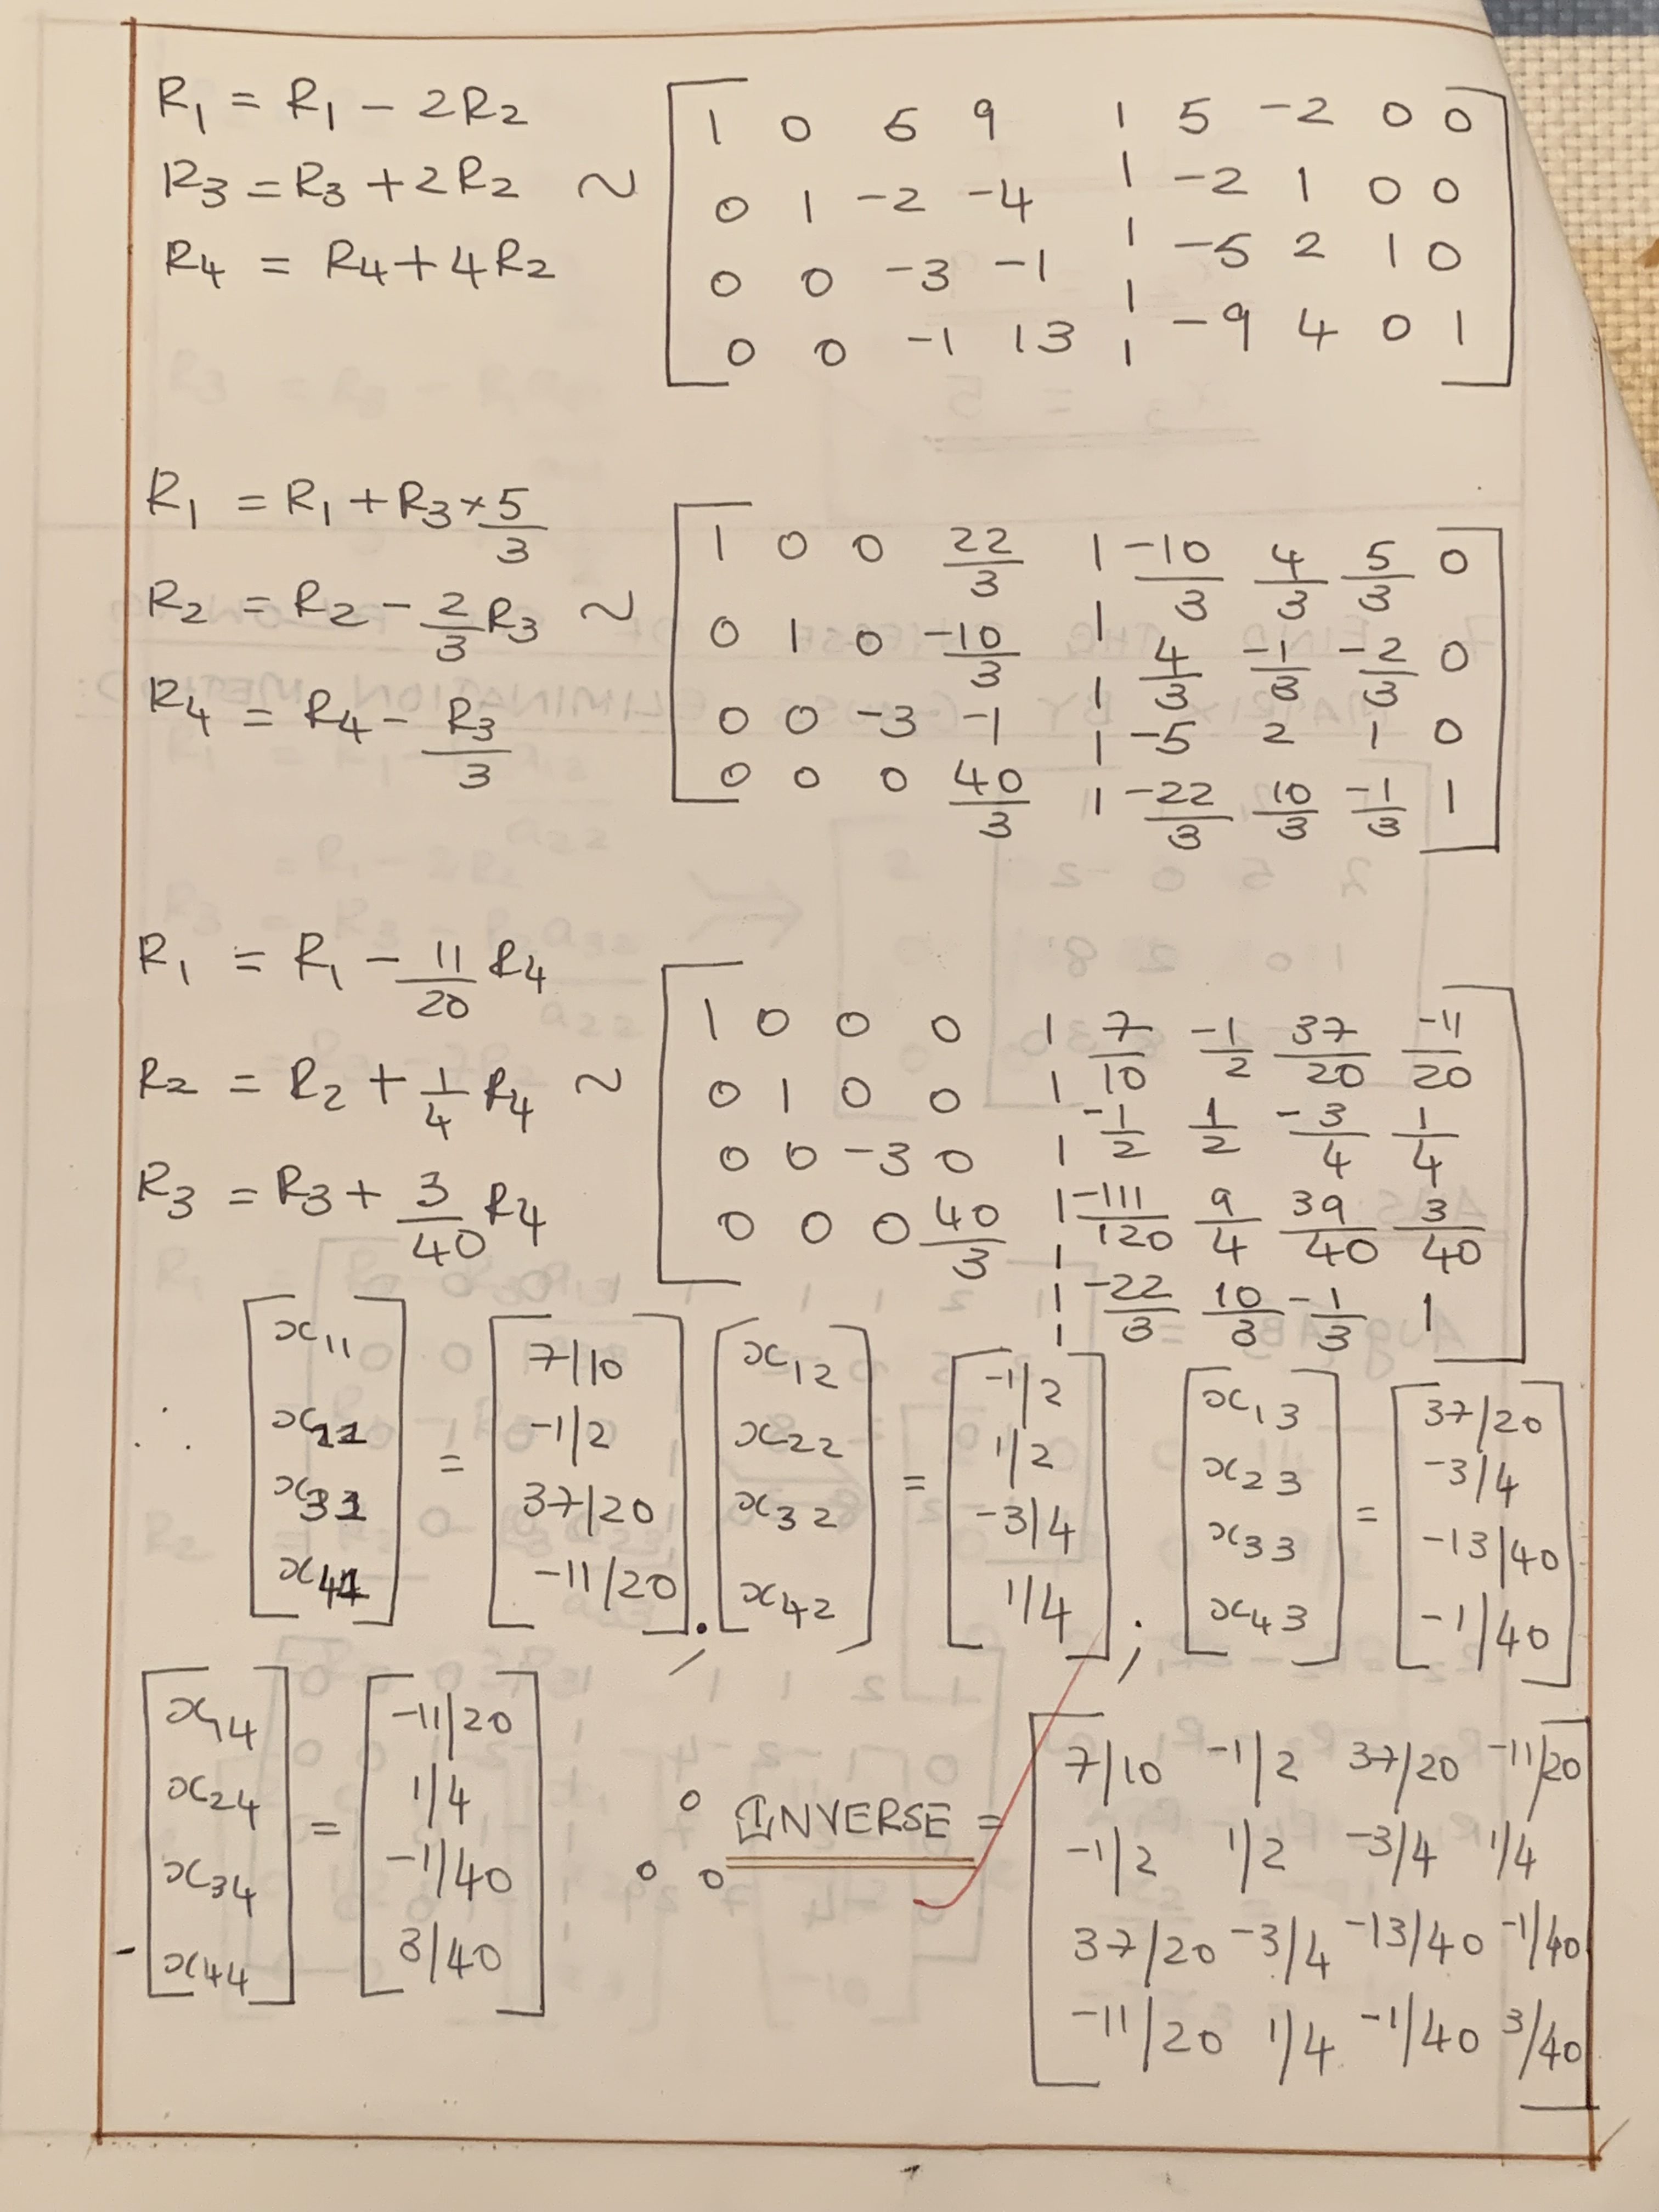 R1 = R1 - 2R2
R3 = R3 + 2R2 ~
R4 = R4 + 4R2
[ 1 0 5 9 | 5 -2 0 0 ]
[ 0 1 -2 -4 | -2 1 0 0 ]
[ 0 0 -3 -1 | -5 2 1 0 ]
[ 0 0 -1 13 | -9 4 0 1 ]
R1 = R1 + R3 × 5/3
R2 = R2 - 2/3 R3 ~
R4 = R4 - R3/3
[ 1 0 0 22/3 | -10/3 4/3 5/3 0 ]
[ 0 1 0 -10/3 | 4/3 -1/3 -2/3 0 ]
[ 0 0 -3 -1 | -5 2 1 0 ]
[ 0 0 0 40/3 | -22/3 10/3 -1/3 1 ]
R1 = R1 - 11/20 R4
R2 = R2 + 1/4 R4 ~
R3 = R3 + 3/40 R4
[ 1 0 0 0 | 7/10 -1/2 37/20 -11/20 ]
[ 0 1 0 0 | -1/2 1/2 -3/4 1/4 ]
[ 0 0 -3 0 | -111/120 9/4 39/40 3/40 ]
[ 0 0 0 40/3 | -22/3 10/3 -1/3 1 ]
∴ [ x11 x21 x31 x41 ] = [ 7/10 -1/2 37/20 -11/20 ] ;
[ x12 x22 x32 x42 ] = [ -1/2 1/2 -3/4 1/4 ] ;
[ x13 x23 x33 x43 ] = [ 37/20 -3/4 -13/40 -1/40 ]
[ x14 x24 x34 x44 ] = [ -11/20 1/4 -1/40 3/40 ]
∴ INVERSE =
[ 7/10 -1/2 37/20 -11/20 ]
[ -1/2 1/2 -3/4 1/4 ]
[ 37/20 -3/4 -13/40 -1/40 ]
[ -11/20 1/4 -1/40 3/40 ]